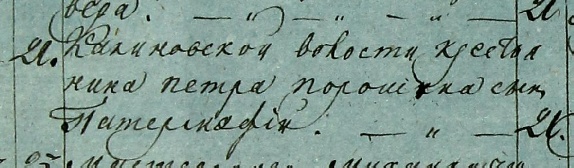 вера. — „ — „ — „ —
21. Калиновской волости крестья
нина петра порошина сын
Патермуфiи. — „ — 21.